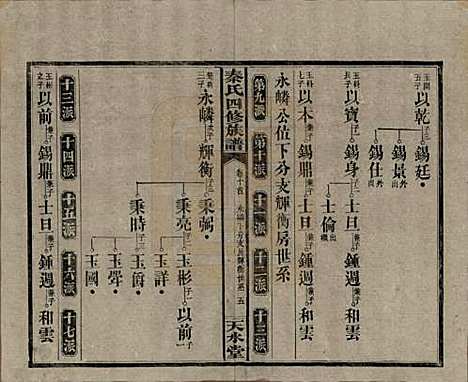 玉閏之子 以乾 錫廷
錫景 外出
錫仕 外出
玉科長子 以寶 錫身 士旦 鍾週 和雲
士倫 出嗣
玉科七子 以本 錫鼎 士旦 鍾週 和雲
永嶙公位下分支輝衡房世系
第九派 第十派 十一派 十二派 十三派
秦氏四修族譜 卷十首 五 天水堂
永嶙 輝衡 秉弼
秉亮 玉彬 以前
玉詳
玉崙
玉聲
秉時 玉國
玉彬之子 以前 錫鼎 士旦 鍾週 和雲
十三派 十四派 十五派 十六派 十七派